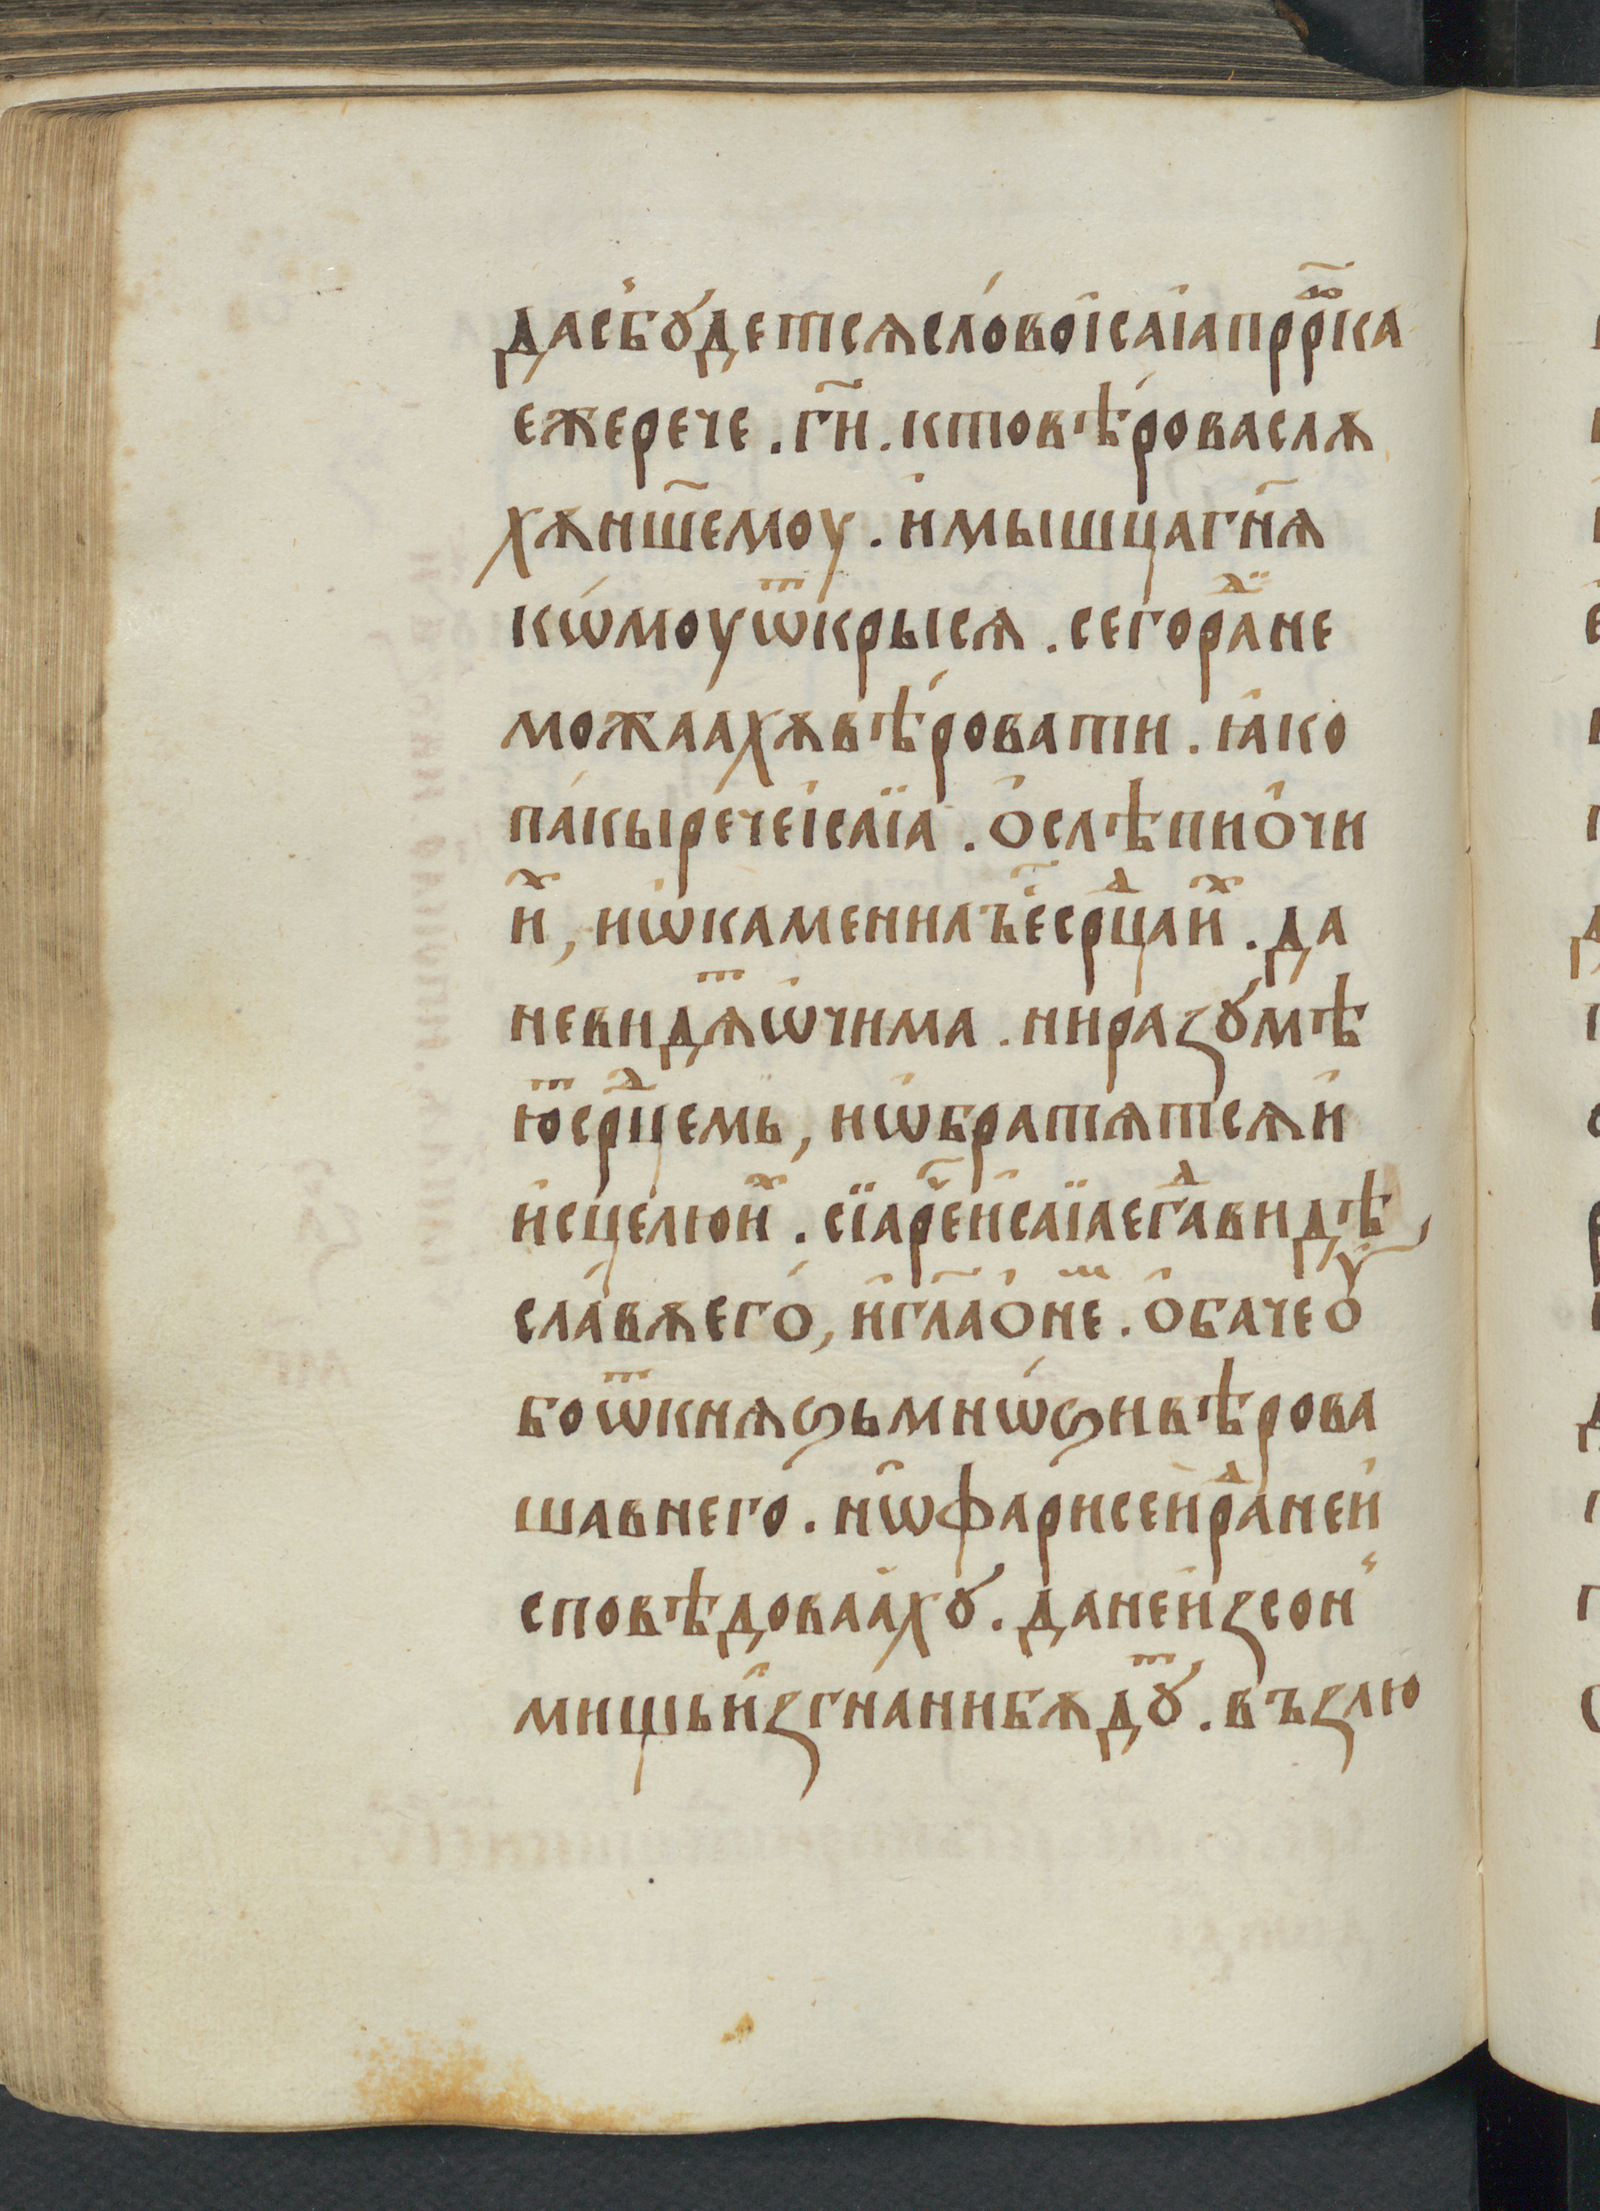 дасбꙋ́детсѧсло́воі҆саі҆апрⷪ҇рка
ежерече . гн҃и . ктовѣ́ровасл꙽ѫ
хѫнш҃емоу . и҆мышцагн҃ѧ
кѡ́моуѿкрысѧ . сегора́ⷣине
можаахѫвѣ́ровати . ꙗ҆ко
па́кыре́чеі҆саїа . о҆слѣпио҆чи
иⷯ , иѡ҆каменилъе҆с҃срⷣцаиⷯ . да
невидѧⷮѡ҆чима . ниразꙋ́мѣ
юⷮсрⷣцемь , иѡ҆братѧтсѧи҆
и҆сцелюиⷯ . сїарече҃и҆саїаегⷣавидѣ
сла́вѫего́ , и҆гл҃ао҆неⷨ . о҆бачеоу҆
боѿкнѧѕьмнѡ́ѕивѣрова
шавнего́ . нѡ҆фарисе́йраⷣине́и҆
сповѣдоваахꙋ . дане́и҆зсон
мищьи҆згнаниб́ѫдꙋⷮ . възлю